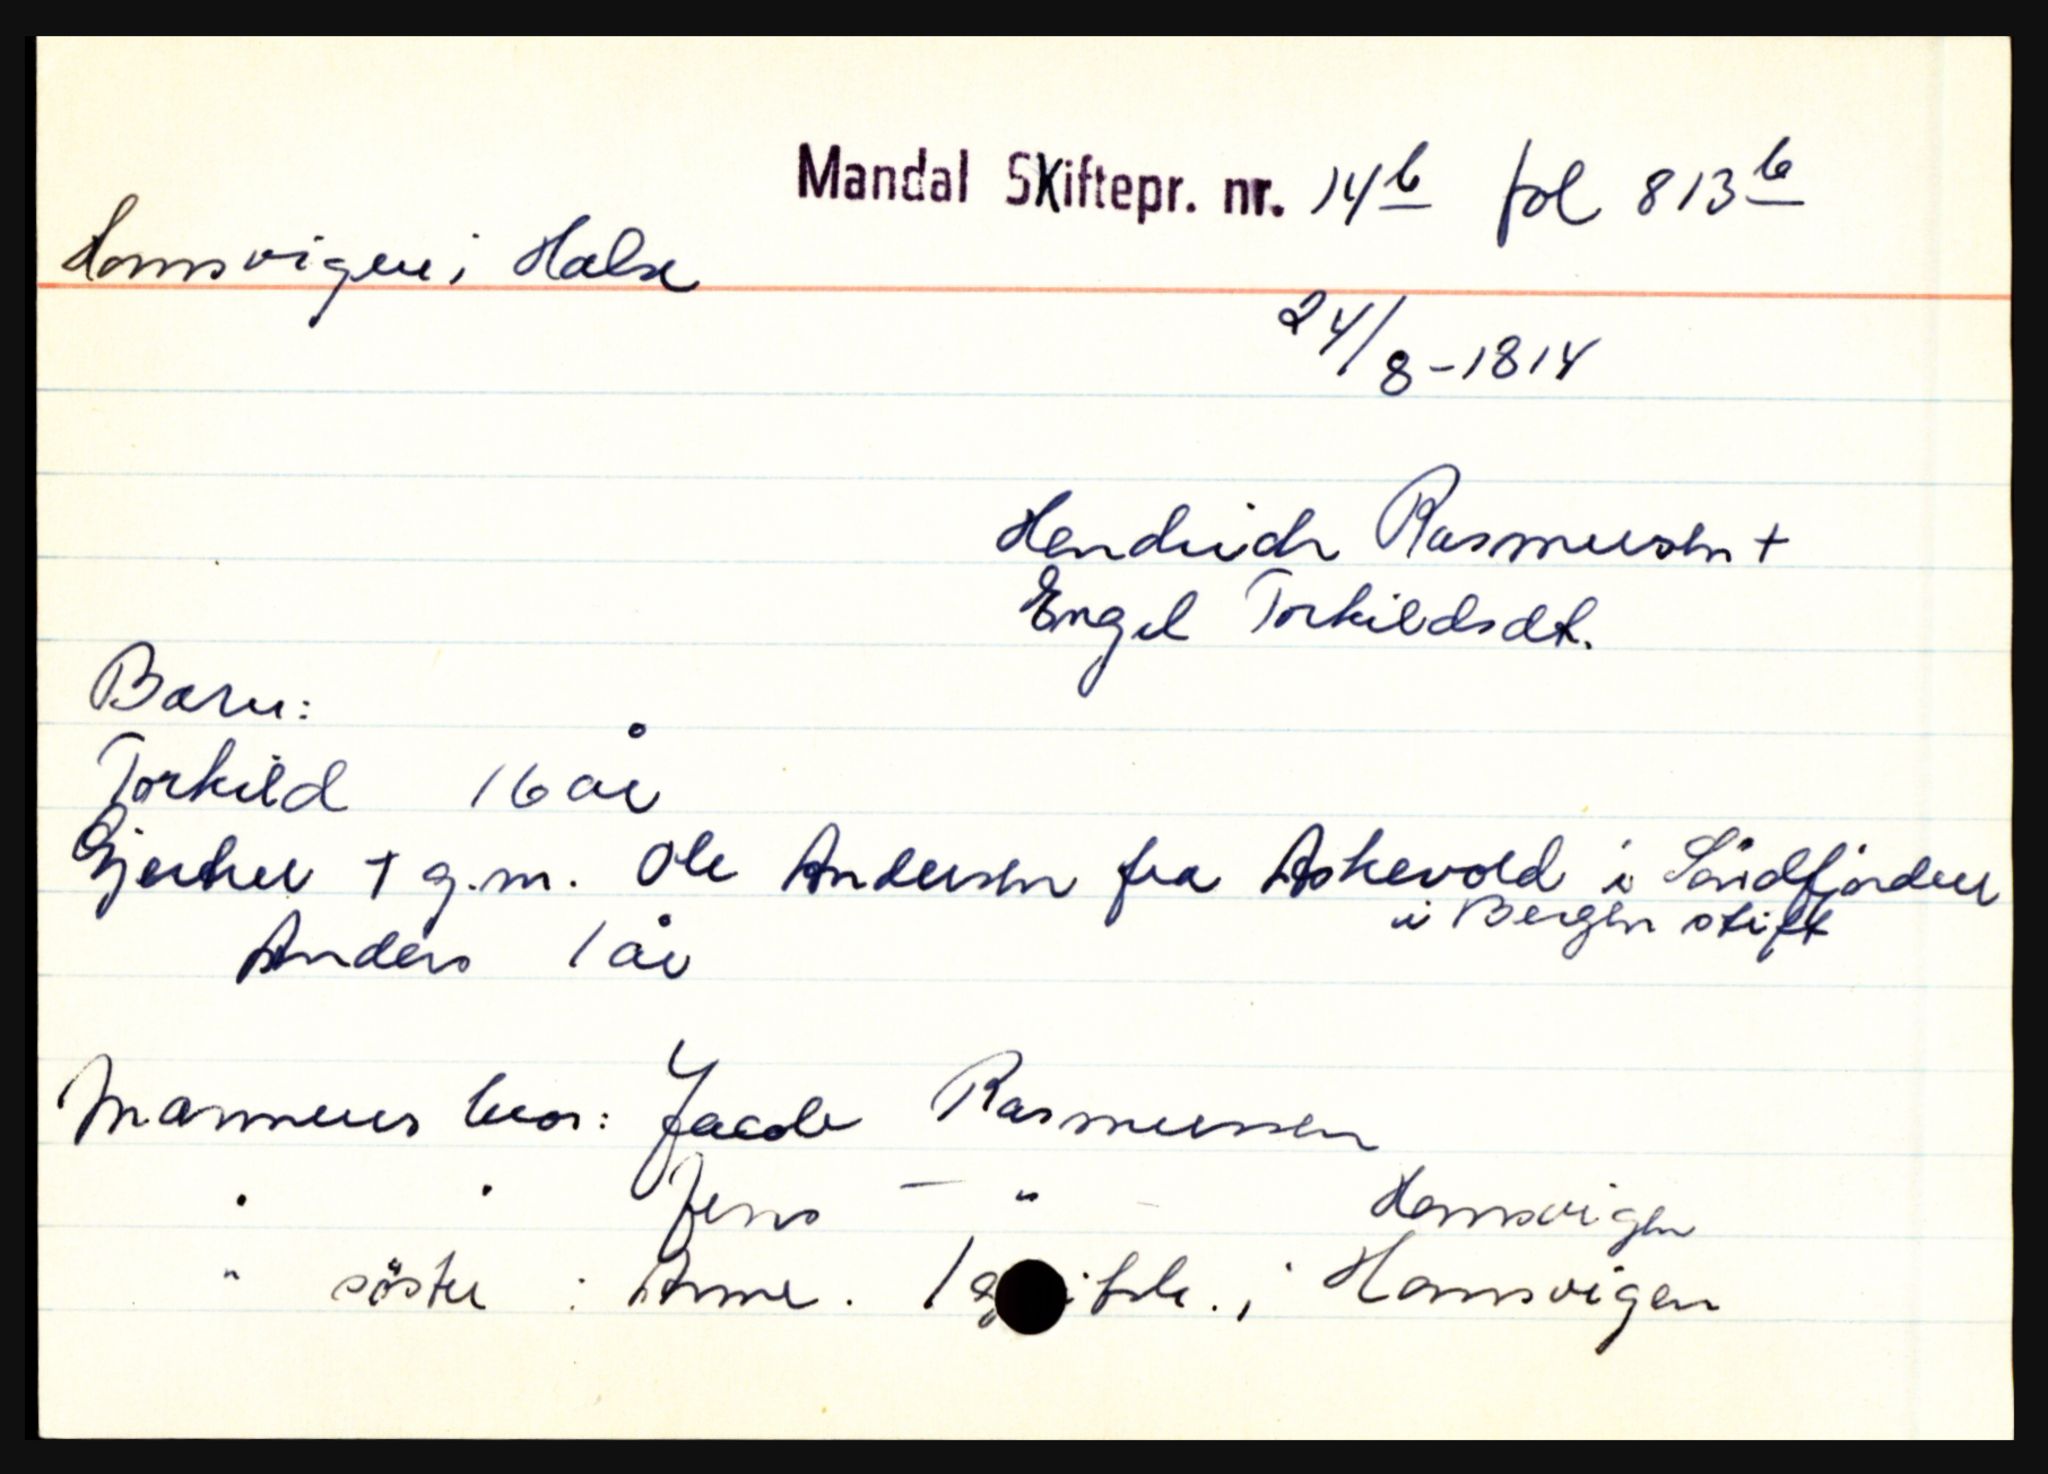 Mandal Skiftepr. nr. 14b fol 813b
Homsvigen i Halse
24/8-1814
Hendrich Rasmusen +
Engel Torkildsdt.
Barn:
Torkild 16 år
Gjerher + g.m. Ole Andersen fra Askevold i Söndfjorden
i Bergen stift
Anders 1 år
Mannens bror: Jacob Rasmussen
" " Jens — " — Homsvigen
" söster : Anne. i Homsvigen